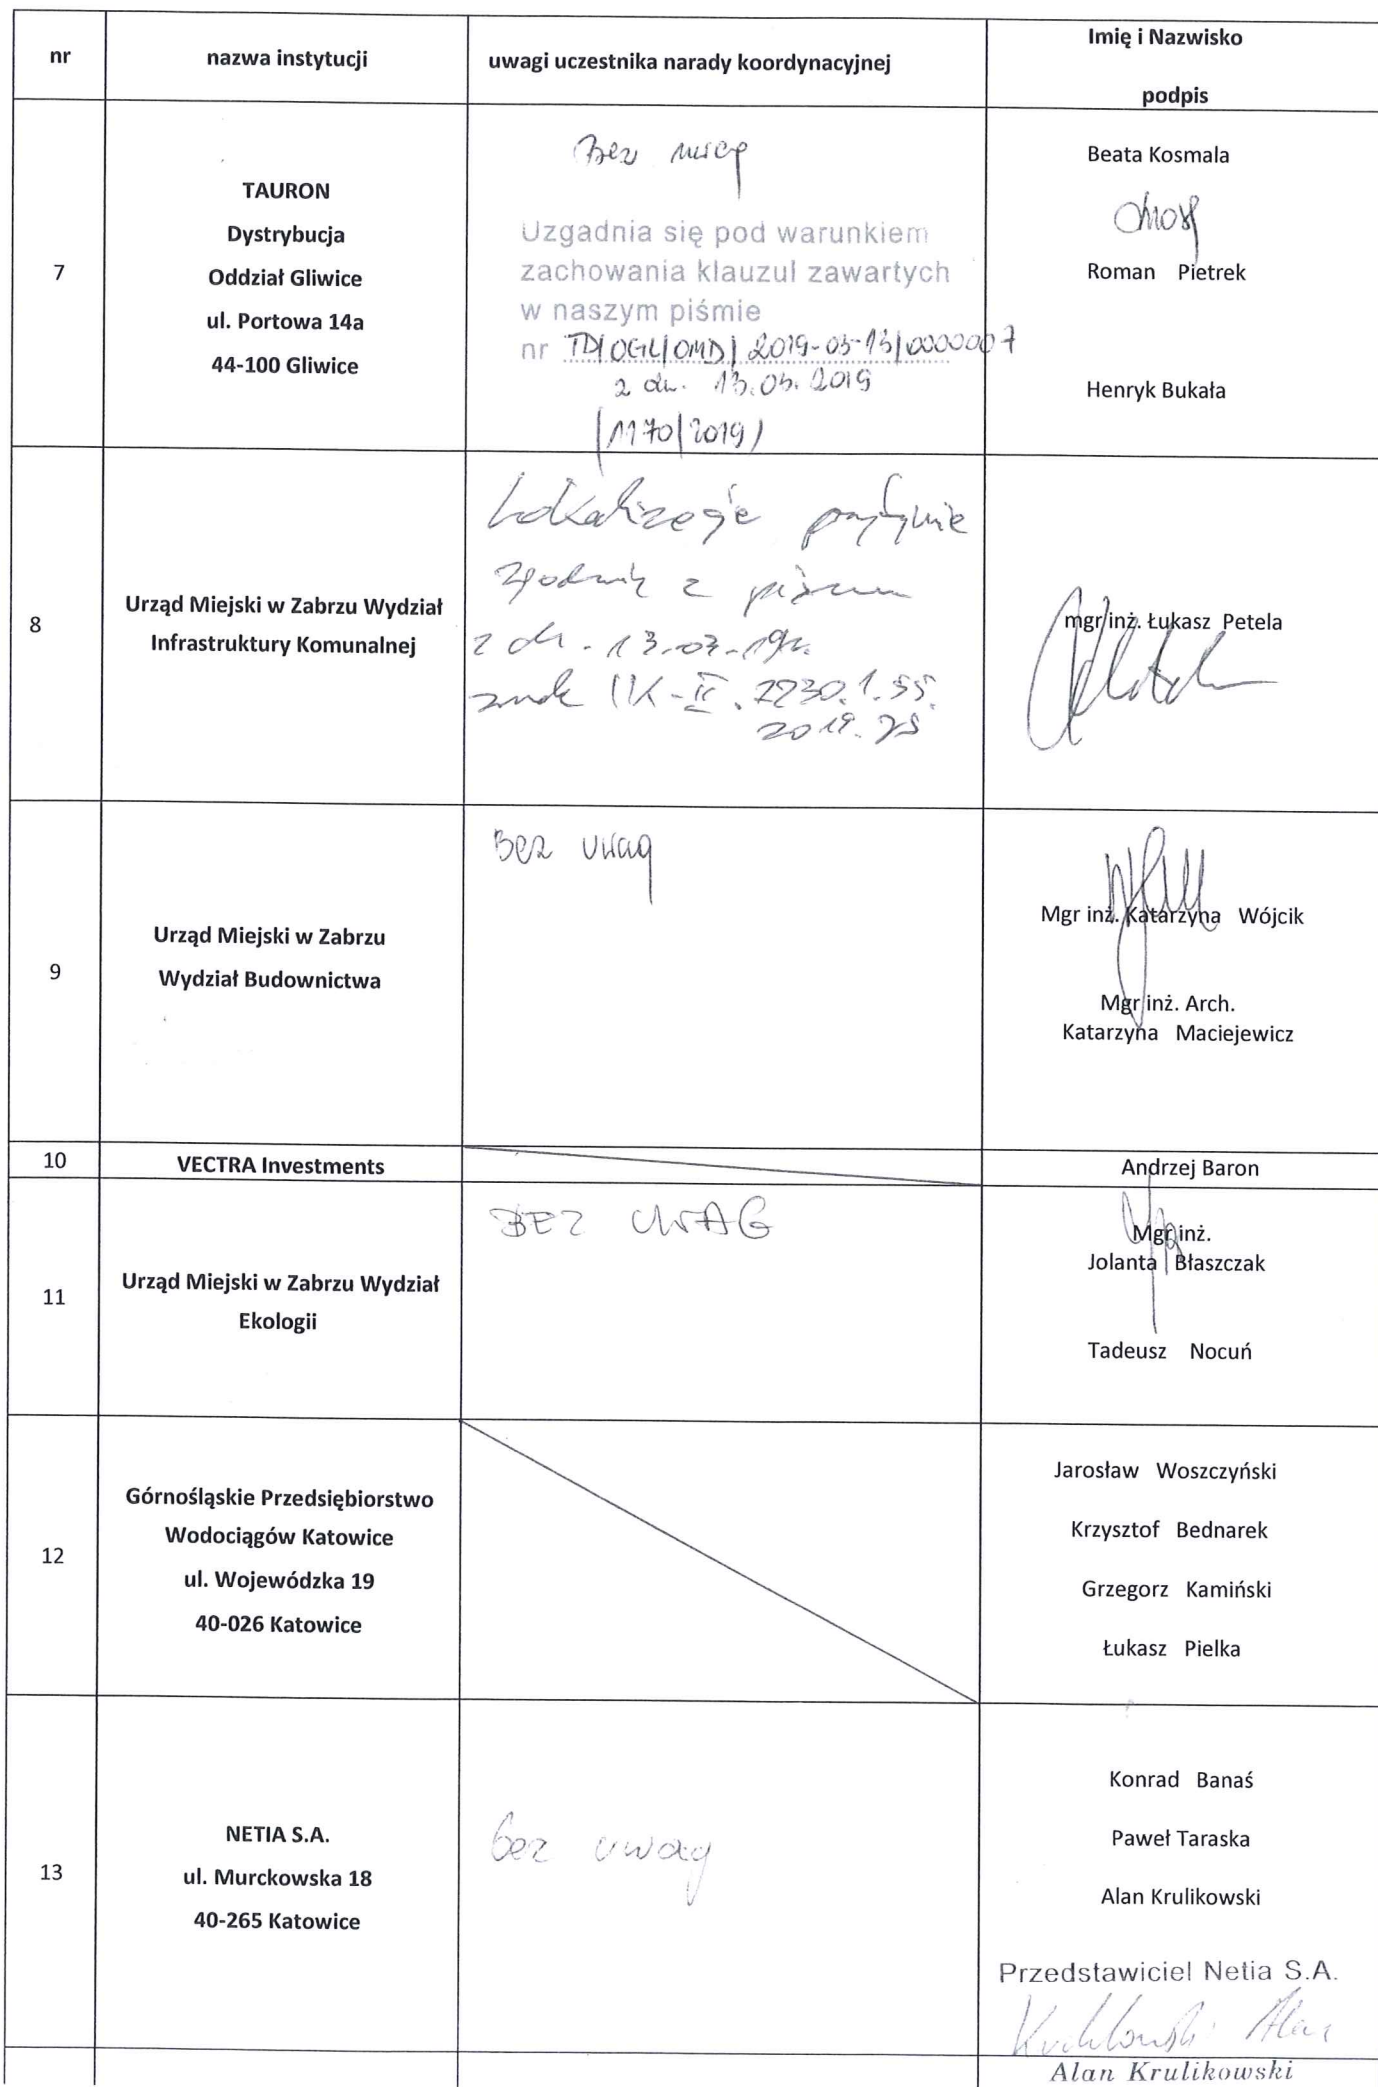 nr
nazwa instytucji
uwagi uczestnika narady koordynacyjnej
Imię i Nazwisko
podpis
7
TAURON
Dystrybucja
Oddział Gliwice
ul. Portowa 14a
44-100 Gliwice
Bez uwag
Uzgadnia się pod warunkiem
zachowania klauzul zawartych
w naszym piśmie
nr TD/OGL/OMD/2019-03-13/0000007
z dn. 13.03.2019
(1170/2019)
Beata Kosmala
Roman Pietrek
Henryk Bukała
8
Urząd Miejski w Zabrzu Wydział
Infrastruktury Komunalnej
Lokalizację
zgodnie z pismem
z dn. 13.03.19r.
znak IK-II.7230.1.55.
2019.
mgr inż. Łukasz Petela
9
Urząd Miejski w Zabrzu
Wydział Budownictwa
Bez uwag
Mgr inż. Katarzyna Wójcik
Mgr inż. Arch.
Katarzyna Maciejewicz
10
VECTRA Investments
Andrzej Baron
11
Urząd Miejski w Zabrzu Wydział
Ekologii
BEZ UWAG
Mgr inż.
Jolanta Błaszczak
Tadeusz Nocuń
12
Górnośląskie Przedsiębiorstwo
Wodociągów Katowice
ul. Wojewódzka 19
40-026 Katowice
Jarosław Woszczyński
Krzysztof Bednarek
Grzegorz Kamiński
Łukasz Pielka
13
NETIA S.A.
ul. Murckowska 18
40-265 Katowice
bez uwag
Konrad Banaś
Paweł Taraska
Alan Krulikowski
Przedstawiciel Netia S.A.
Krulikowski Alan
Alan Krulikowski